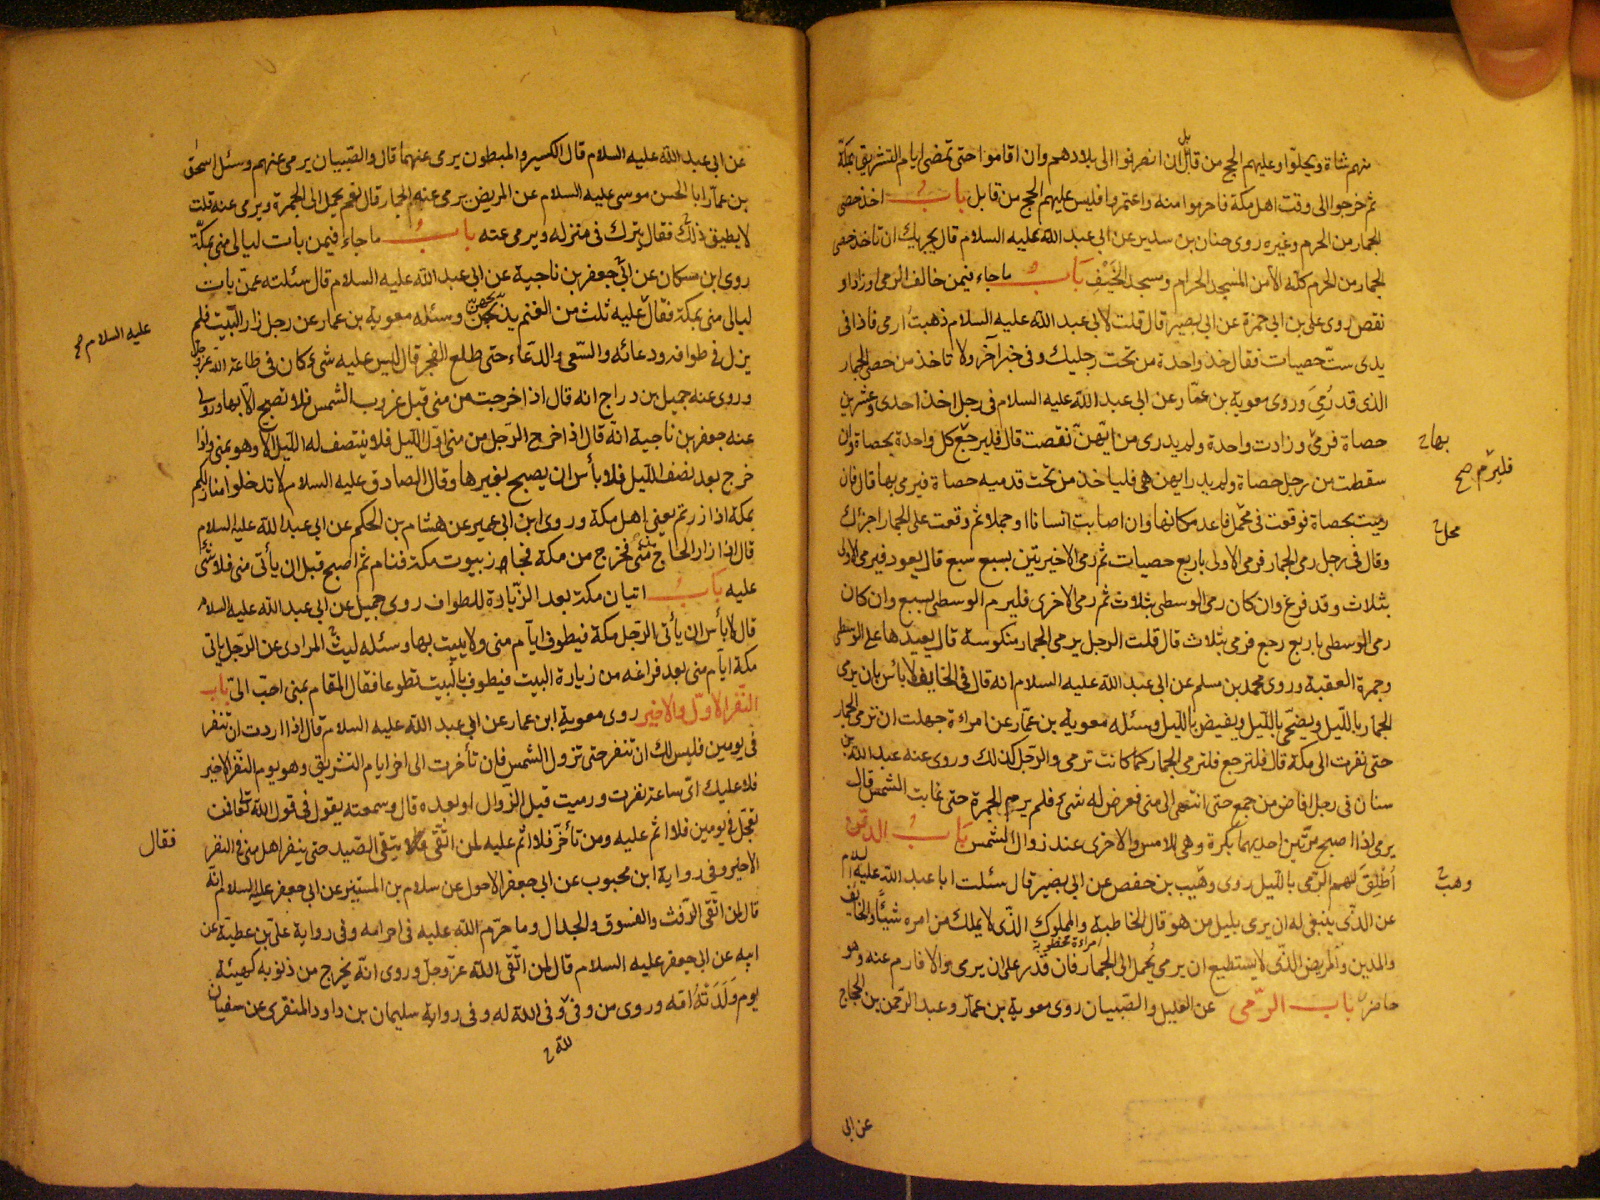 منهم شاة ويحلوا وعليهم الحج من قابل ان انصرفوا الى بلادهم وان اقاموا حتى تمضى ايام التشريق بمكة
ثم خرجوا الى وقت اهل مكة فاحرموا منه واعتمروا فليس عليهم الحج من قابل باب اخذ حصى
الجمار من الحرم وغيره روى حنان بن سدير عن ابى عبد الله عليه السلام قال يجزيك ان تاخذ حصى
الجمار من الحرم كله الا من المسجد الحرام ومسجد الخَيْف باب ما جاء فيمن خالف الرمى او زاد او
نقص روى على بن ابى حمزة عن ابى بصير قال قلت لابى عبد الله عليه السلام ذهبتُ ارمى فاذا فى
يدى ستّ حصيات فقال خذ واحدة من تحت رجليك وفى خبر آخر ولا تاخذ من حصى الجمار
الذى قد رُمِىَ وروى معوية بن عمّار عن ابى عبد الله عليه السلام فى رجل اخذ احدى وعشرين
حصاة فرمى وزادت واحدة ولم يدرى من ايّهنّ نقصت قال فليرجع كل واحدة بحصاة وان
سقطت من رجل حصاة ولم يدر ايهن هى فلياخذ من تحت قدميه حصاة فيرمى بها قال فان
رميت بحصاة فوقعت فى محمل فاعد مكانها وان اصابت انسانا او جملا ثم وقعت على الجمار اجزاك
وقال فى رجل رمى الجمار فرمى الاولى باربع حصيات ثم رمى الاخيرتين بسبع سبع قال يعود فيرمى الاولى
بثلاث وقد فرغ وان كان رمى الوسطى بثلاث ثم رمى الاخرى فليرم الوسطى بسبع وان كان
رمى الوسطى باربع رجع فرمى بثلاث قال قلت الرجل يرمى الجمار منكوسة قال يعيدها على الوسطى
وجمرة العقبة وروى محمد بن مسلم عن ابى عبد الله عليه السلام انه قال فى الخايف لا بأس بان يرمى
الجمار بالليل ويضحّى بالليل ويفيض بالليل وسئله معوية بن عمّار عن امراءة جهلت ان ترمى الجمار
حتى نفرت الى مكة قال فلترجع فلترمى الجمار كما كانت ترمى والرجل كذلك وروى عنه عبد الله بن
سنان فى رجل افاض من جمع حتى انتهى الى منى فعرض له شىء فلم يرم الجمرة حتى غابت الشمس قال
يرمى اذا اصبح مرّتين احديهما بكرة وهى للامس والاخرى عند زوال الشمس باب الذين
اُطْلِقَ لهم الرّمى بالليل روى وهَيب بن حفص عن ابى بصير قال سئلت ابا عبد الله عليه السلام
عن الّذى ينبغى له ان يرمى بليل من هو قال الحاطبة والمملوك الذى لا يملك من امره شيئًا والخايف
والمدين والمريض الّذى لا يستطيع ان يرمى يُحمل الى الجمار فان قدر على ان يرمى والا فارم عنه وهو
حاضر باب الرّمى عن العليل والصّبيان روى معوية بن عمّار وعبد الرّحمن بن الحجّاج
بها
فليرم صح
محل
وهب
عن ابى
عن ابى عبد الله عليه السلام قال الكسير والمبطون يرمى عنهما قال والصّبيان يرمى عنهم وسئل اسحٰق
بن عمّار ابا الحسن موسى عليه السلام عن المريض يرمى عنه الجمار قال نعم يحمل الى الجمرة ويرمى عنه قلت
لا يطيق ذلك فقال يترك فى منزله ويرمى عنه باب ما جاء فيمن بات ليالى منى بمكّة
روى ابن مسكان عن ابى جعفر بن ناجية عن ابى عبد الله عليه السلام قال سئلته عمّن بات
ليالى منى بمكة فقال عليه ثلث من الغنم يذبحهنّ وسئله معوية بن عمار عن رجل زار البيت فلم
يزل فى طوافه ودعائه والسّعى والدّعاء حتى طلع الفجر قال ليس عليه شىء كان فى طاعة الله عزوجل
وروى عنه جميل بن دراج انه قال اذا خرجت من منى قبل غروب الشمس فلا تصبح الا بها وروى
عنه جعفر بن ناجية انّه قال اذا خرج الرّجل من منى اوّل الليل فلا ينتصف له الليل الّا وهو بمنى واذا
خرج بعد نصف الليل فلا بأس ان يصبح بغيرها وقال الصادق عليه السلام لا تدخلوا منازلكم
بمكة اذا زرتم يعنى اهل مكة وروى ابن ابى عمير عن هشام بن الحكم عن ابى عبد الله عليه السلام
قال اذا زار الحاج من منى فخرج من مكة فجاوز بيوت مكة فنام ثم اصبح قبل ان يأتى منى فلا شىء
عليه باب اتيان مكة بعد الزّيادة للطواف روى جميل عن ابى عبد الله عليه السلام
قال لا بأس ان يأتى الرجل مكة فيطوف ايّام منى ولا يبيت بها وسئله ليث المرادى عن الرجل ياتى
مكة ايّام منى بعد فراغه من زيارة البيت فيطوف بالبيت تطوعا فقال المقام بمنى احب الىّ باب
النّفر الاوّل والاخير روى معوية ابن عمار عن ابى عبد الله عليه السلام قال اذا اردت ان تنفر
فى يومين فليس لك ان تنفر حتى تزول الشمس فان تأخرت الى اخر ايام التشريق وهو يوم النّفر الاخير
فلا عليك اىّ ساعة نفرت ورميت قبل الزّوال او بعده قال وسمعته يقول فى قول الله تعالى فمن
تعجّل فى يومين فلا اثم عليه ومن تأخّر فلا اثم عليه لمن اتّقى يتقى الصّيد حتى ينفر اهل منى فى النفر
الاخير وفى رواية ابن محبوب عن ابى جعفر الاحول عن سلام بن المستنير عن ابى جعفر عليه السلام انّه
قال لمن اتّقى الرّفث والفسوق والجدال وما حرّم الله عليه فى احرامه وفى رواية علىّ بن عطيّة عن
ابيه عن ابى جعفر عليه السلام قال لمن اتّقى الله عزّ وجلّ وروى انّه يخرج من ذنوبه كهيئة
يوم وَلَدَتْهُ امّه وروى من وفى وفى الله له وفى رواية سليمان بن داود المنقرى عن سفيان
عليه السلام صح
فقال
لله